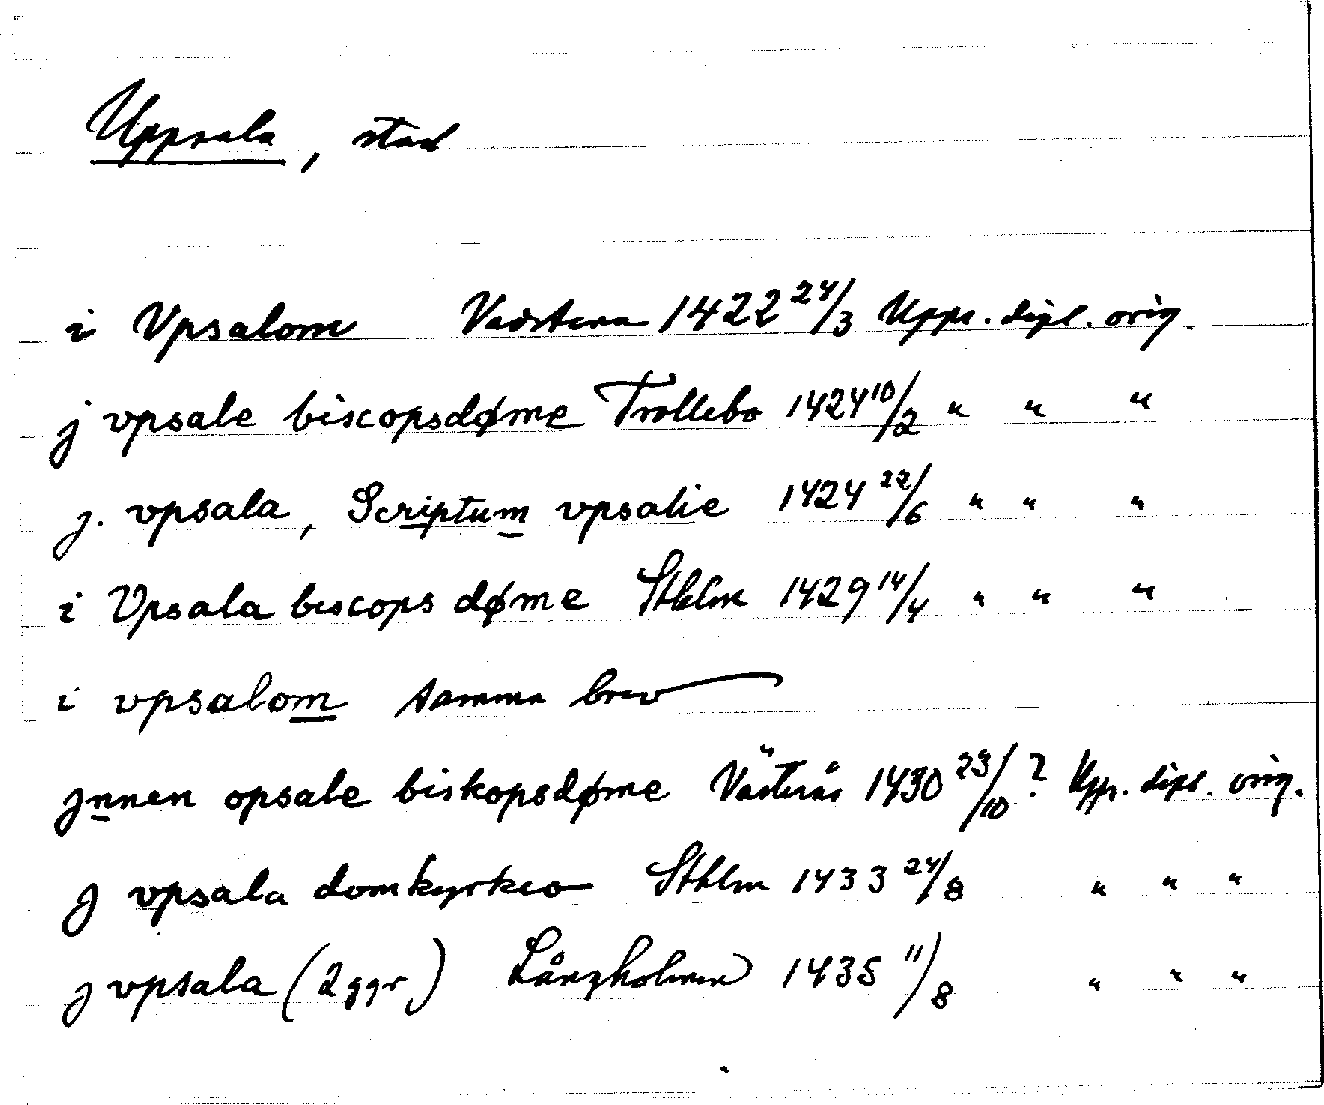 Uppsala, stad
i Vpsalom Vadstena 1422 24/3 Upps. dipl. orig.
j vpsale biscopsdøme Trollebo 1424 10/2 " " "
j. vpsala, Scriptum vpsalie 1424 22/6 " " "
i Vpsala biscops døme Sthlm 1429 14/4 " " "
i vpsalom samma brev
jnnen opsale biskopsdøme Västerås 1430 23/10? Upps. dipl. orig.
j vpsala domkyrkio Sthlm 1433 24/8 " " "
j vpsala (2 ggr) Långholmen 1435 11/8 " " "